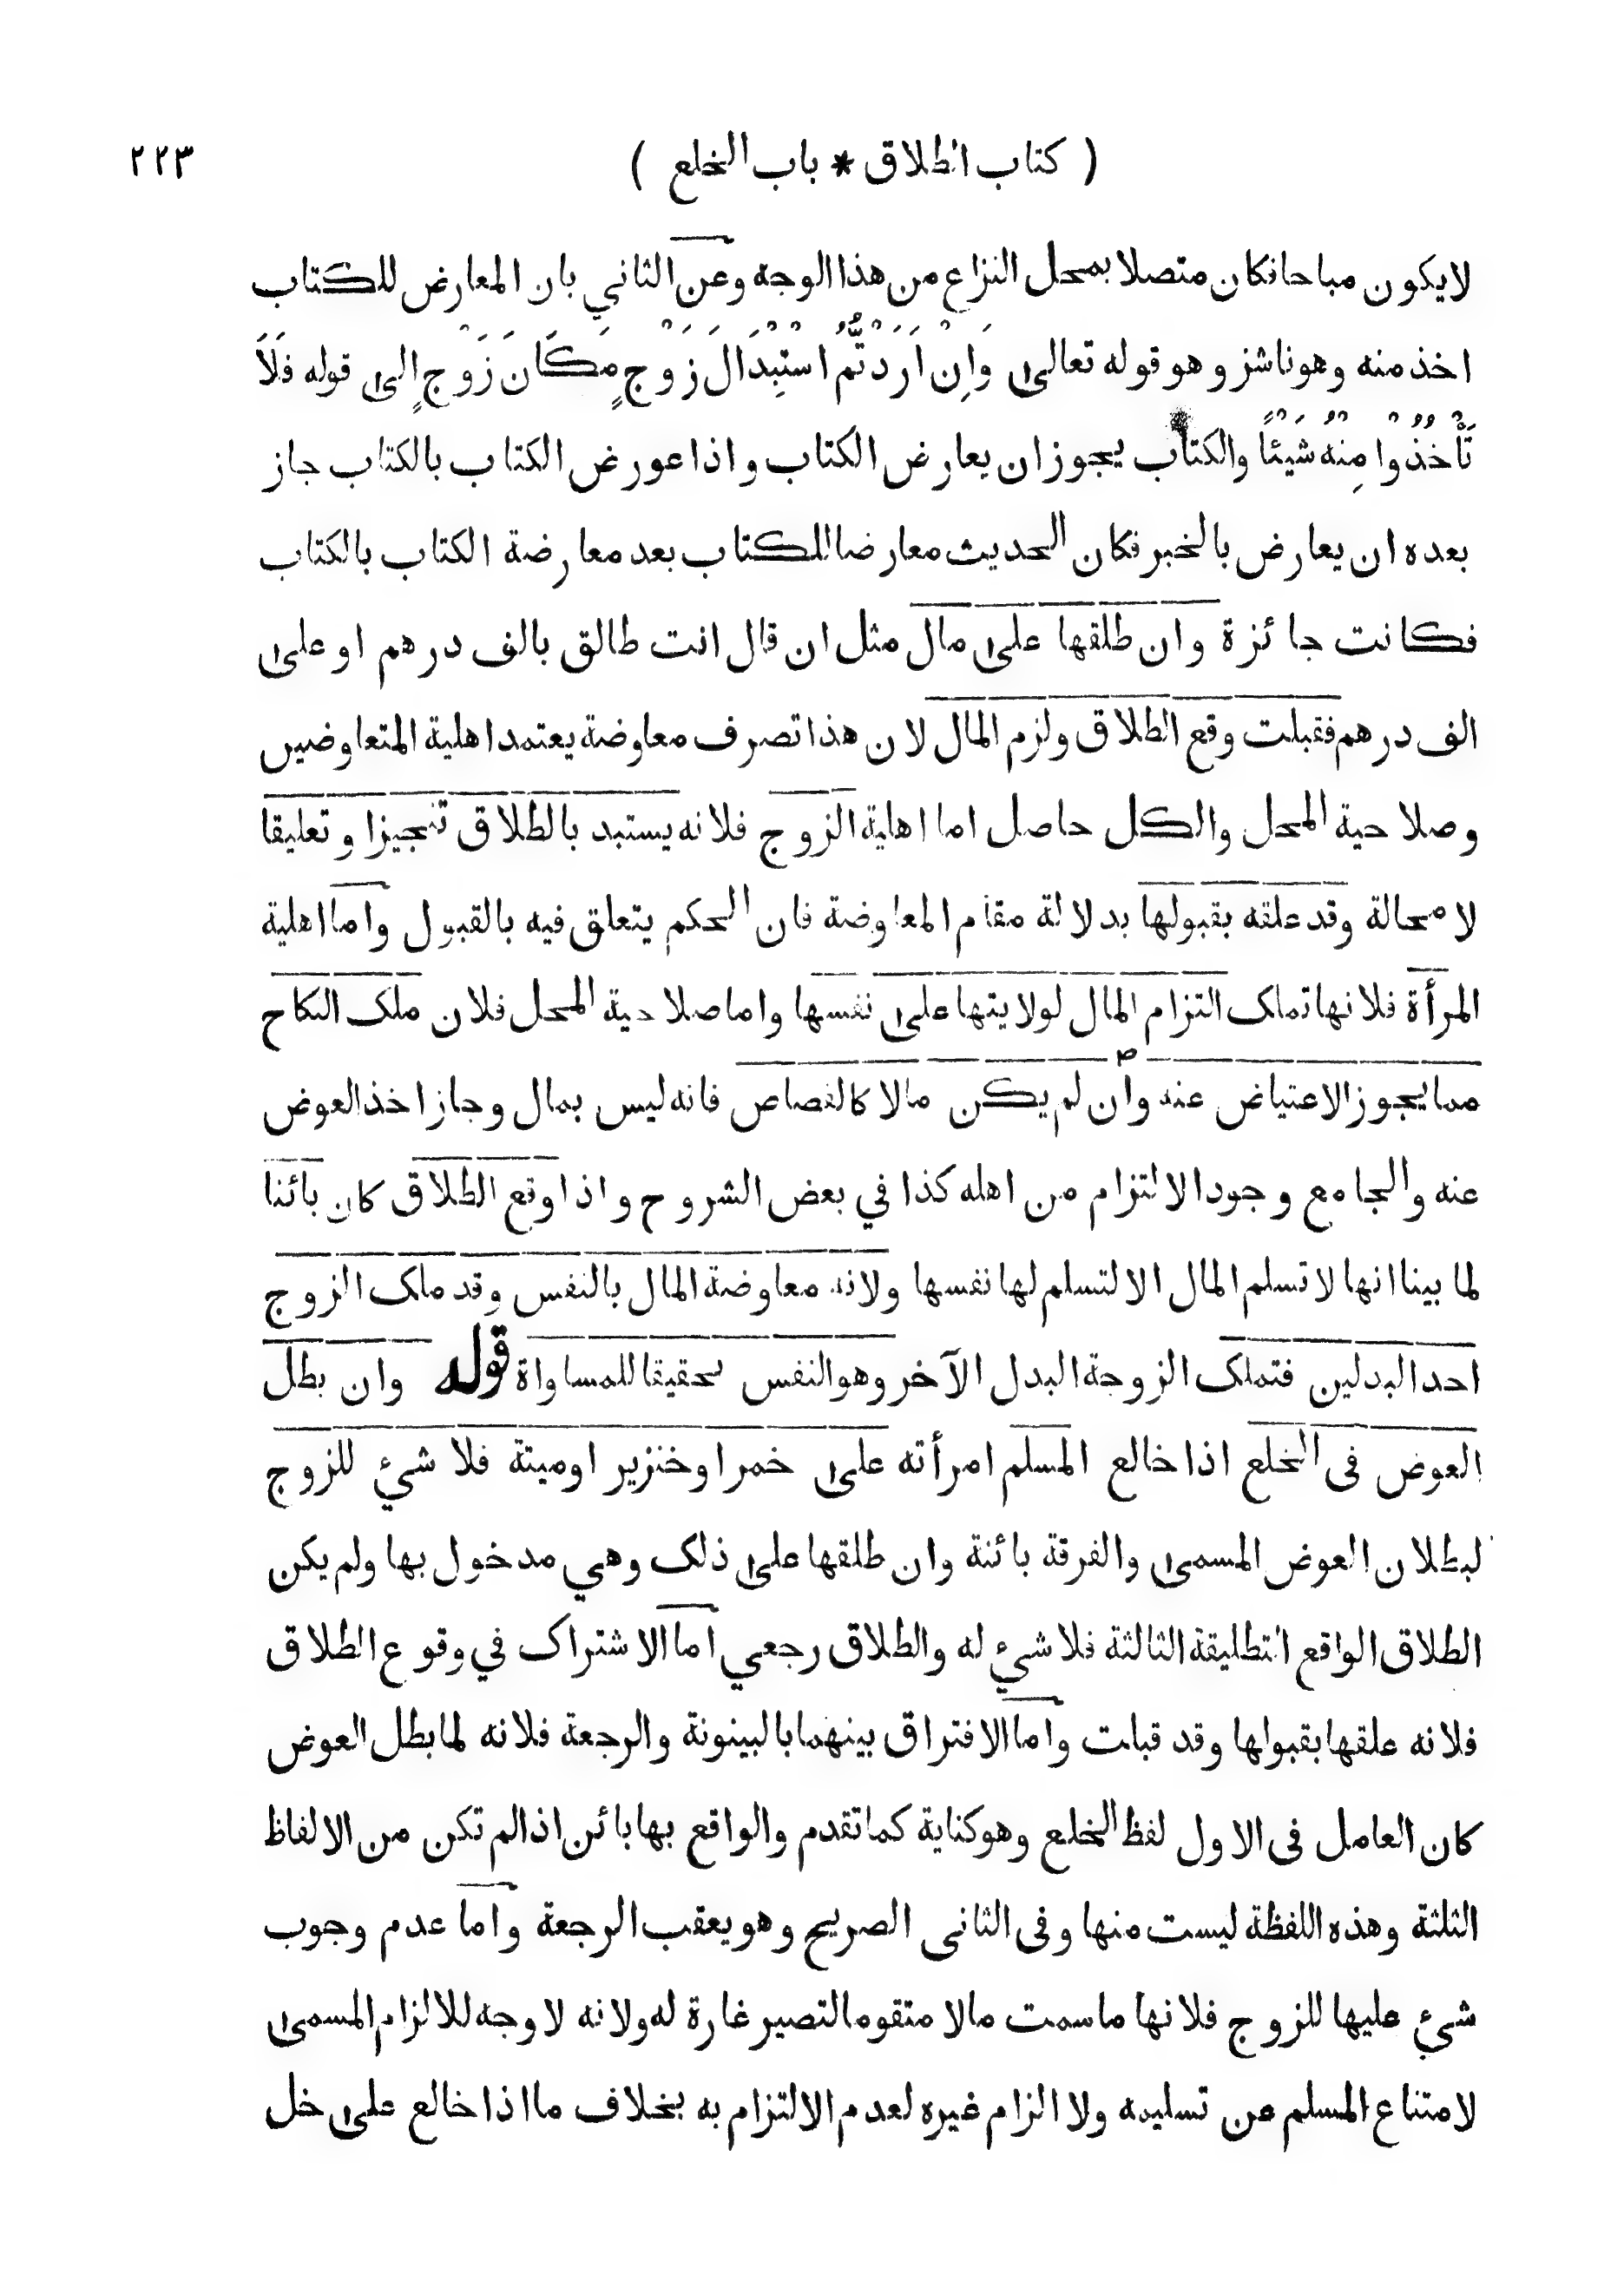 ( كتاب الطلاق * باب الخلع ) ٢٢٣
لايكون مباحا فكان متصلا بمحل النزاع من هذا الوجه وعن الثاني بان المعارض للكتاب
اخذ منه وهو ناشز وهو قوله تعالى وَاِنْ اَرَدْتُّمُ اسْتِبْدَالَ زَوْجٍ مَكَانَ زَوْجٍ الى قوله فَلَا
تَأْخُذُوْا مِنْهُ شَيْئًا والكتاب يجوز ان يعارض الكتاب واذا عورض الكتاب بالكتاب جاز
بعده ان يعارض بالخبر فكان الحديث معارضا للكتاب بعد معارضة الكتاب بالكتاب
فكانت جائزة وان طلقها على مال مثل ان قال انت طالق بالف درهم او على
الف درهم فقبلت وقع الطلاق ولزم المال لان هذا تصرف معاوضة يعتمد اهلية المتعاوضين
وصلاحية المحل والكل حاصل اما اهلية الزوج فلانه يستبد بالطلاق تنجيزا وتعليقا
لا محالة وقد علقه بقبولها بدلالة مقام المعاوضة فان الحكم يتعلق فيه بالقبول واما اهلية
المرأة فلانها تملك التزام المال لولايتها على نفسها واما صلاحية المحل فلان ملك النكاح
مما يجوز الاعتياض عنه وان لم يكن مالا كالقصاص فانه ليس بمال وجاز اخذ العوض
عنه والجامع وجود الالتزام من اهله كذا في بعض الشروح واذا وقع الطلاق كان بائنا
لما بينا انها لا تسلم المال الا لتسلم لها نفسها ولانه معاوضة المال بالنفس وقد ملك الزوج
احد البدلين فتملك الزوجة البدل الآخر وهو النفس تحقيقا للمساواة قوله وان بطل
العوض فى الخلع اذا خالع المسلم امرأته على خمر او خنزير او ميتة فلا شئ للزوج
لبطلان العوض المسمى والفرقة بائنة وان طلقها على ذلك وهي مدخول بها ولم يكن
الطلاق الواقع التطليقة الثالثة فلا شئ له والطلاق رجعي اما الاشتراك في وقوع الطلاق
فلانه علقها بقبولها وقد قبلت واما الافتراق بينهما بالبينونة والرجعة فلانه لما بطل العوض
كان العامل فى الاول لفظ الخلع وهو كناية كما تقدم والواقع بها بائن اذا لم تكن من الالفاظ
الثلثة وهذه اللفظة ليست منها وفى الثانى الصريح وهو يعقب الرجعة واما عدم وجوب
شئ عليها للزوج فلانها ما سمت مالا متقوما لتصير غارة له ولانه لا وجه لالزام المسمى
لامتناع المسلم عن تسليمه ولا الزام غيره لعدم الالتزام به بخلاف ما اذا خالع على خل